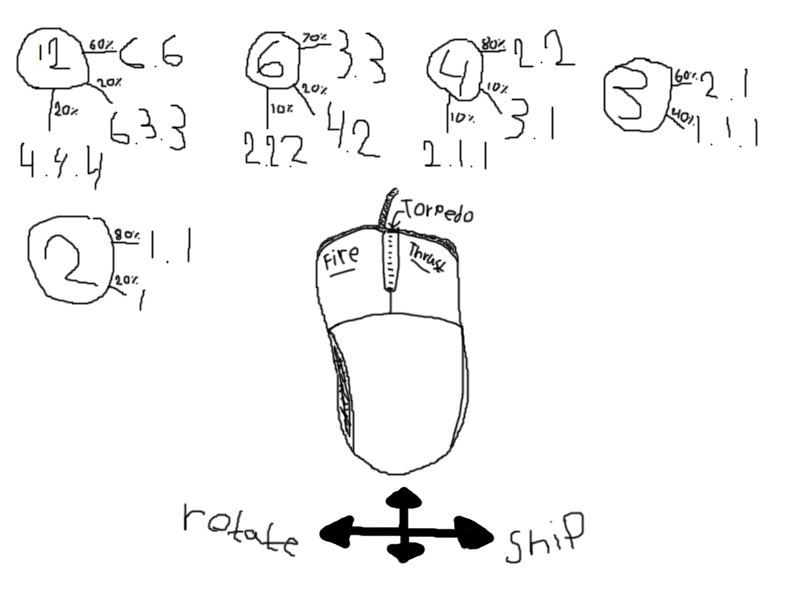 12 60% 6.6
20% 6.3.3
20% 4.4.4
6 70% 3.3
20% 4.2
10% 2.2.2
4 80% 2.2
10% 3.1
10% 2.1.1
3 60% 2.1
40% 1.1.1
2 80% 1.1
20% 1
Torpedo
Fire Thrust
rotate ship